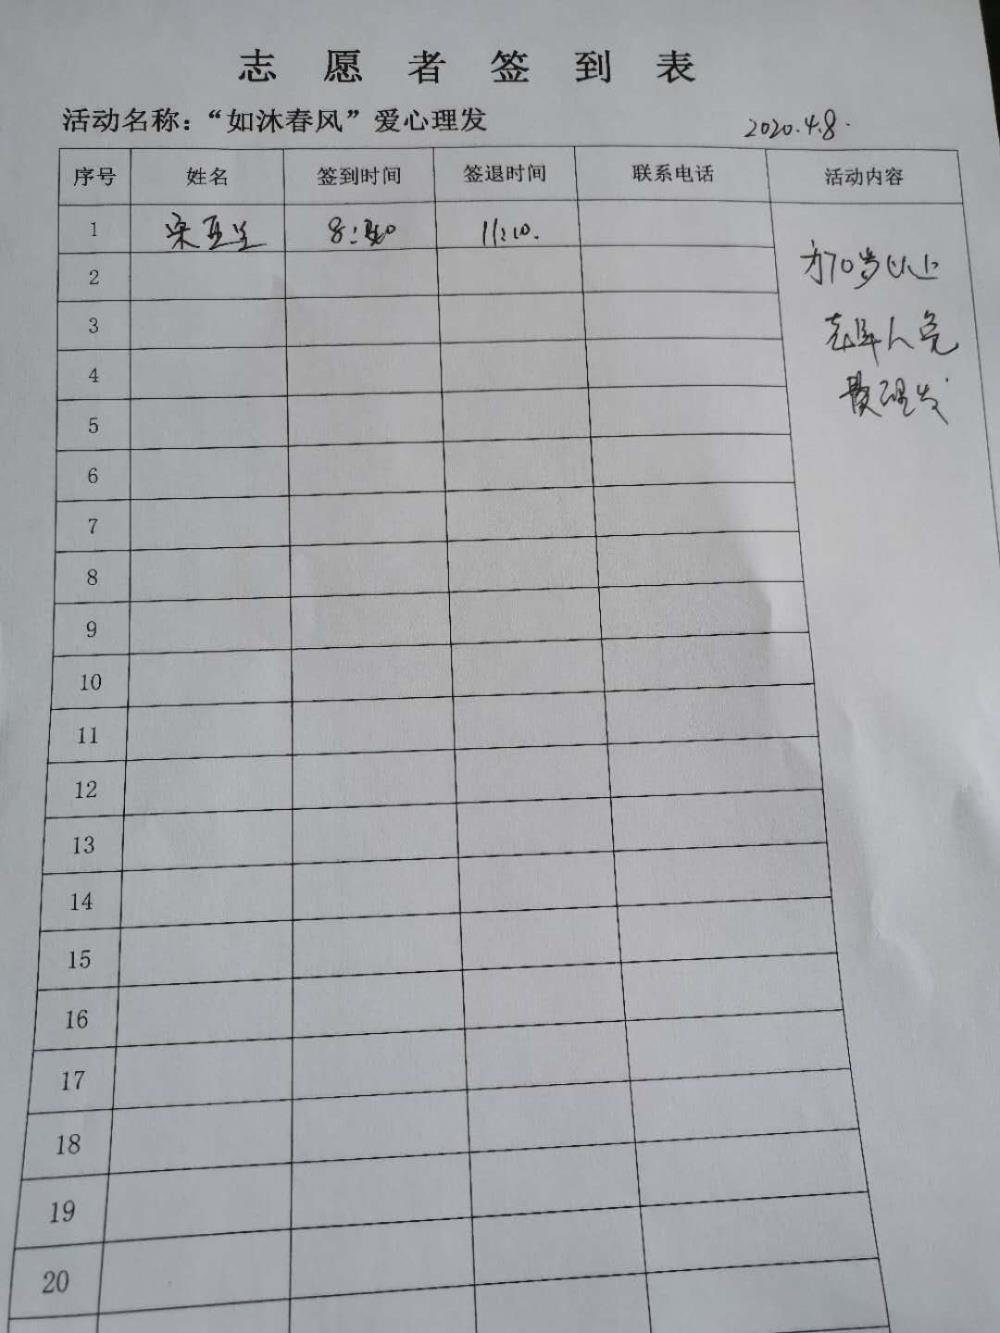 志愿者签到表
活动名称：“如沐春风”爱心理发 2020.4.8.
序号 姓名 签到时间 签退时间 联系电话 活动内容
1 11:10.
为70岁以上
老年人免
费理发
2
3
4
5
6
7
8
9
10
11
12
13
14
15
16
17
18
19
20